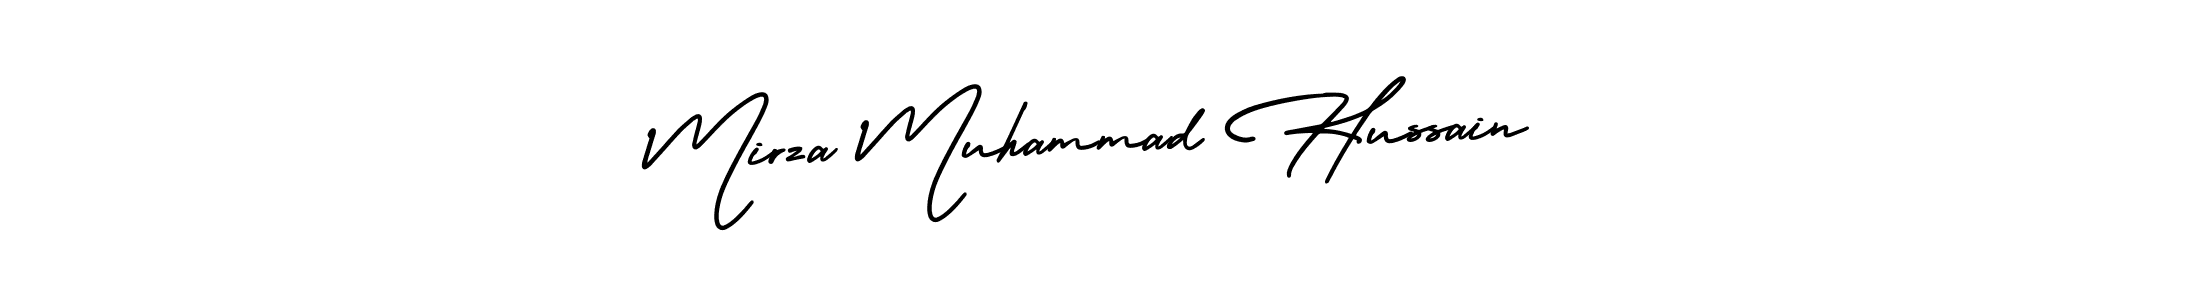 Mirza Muhammad Hussain